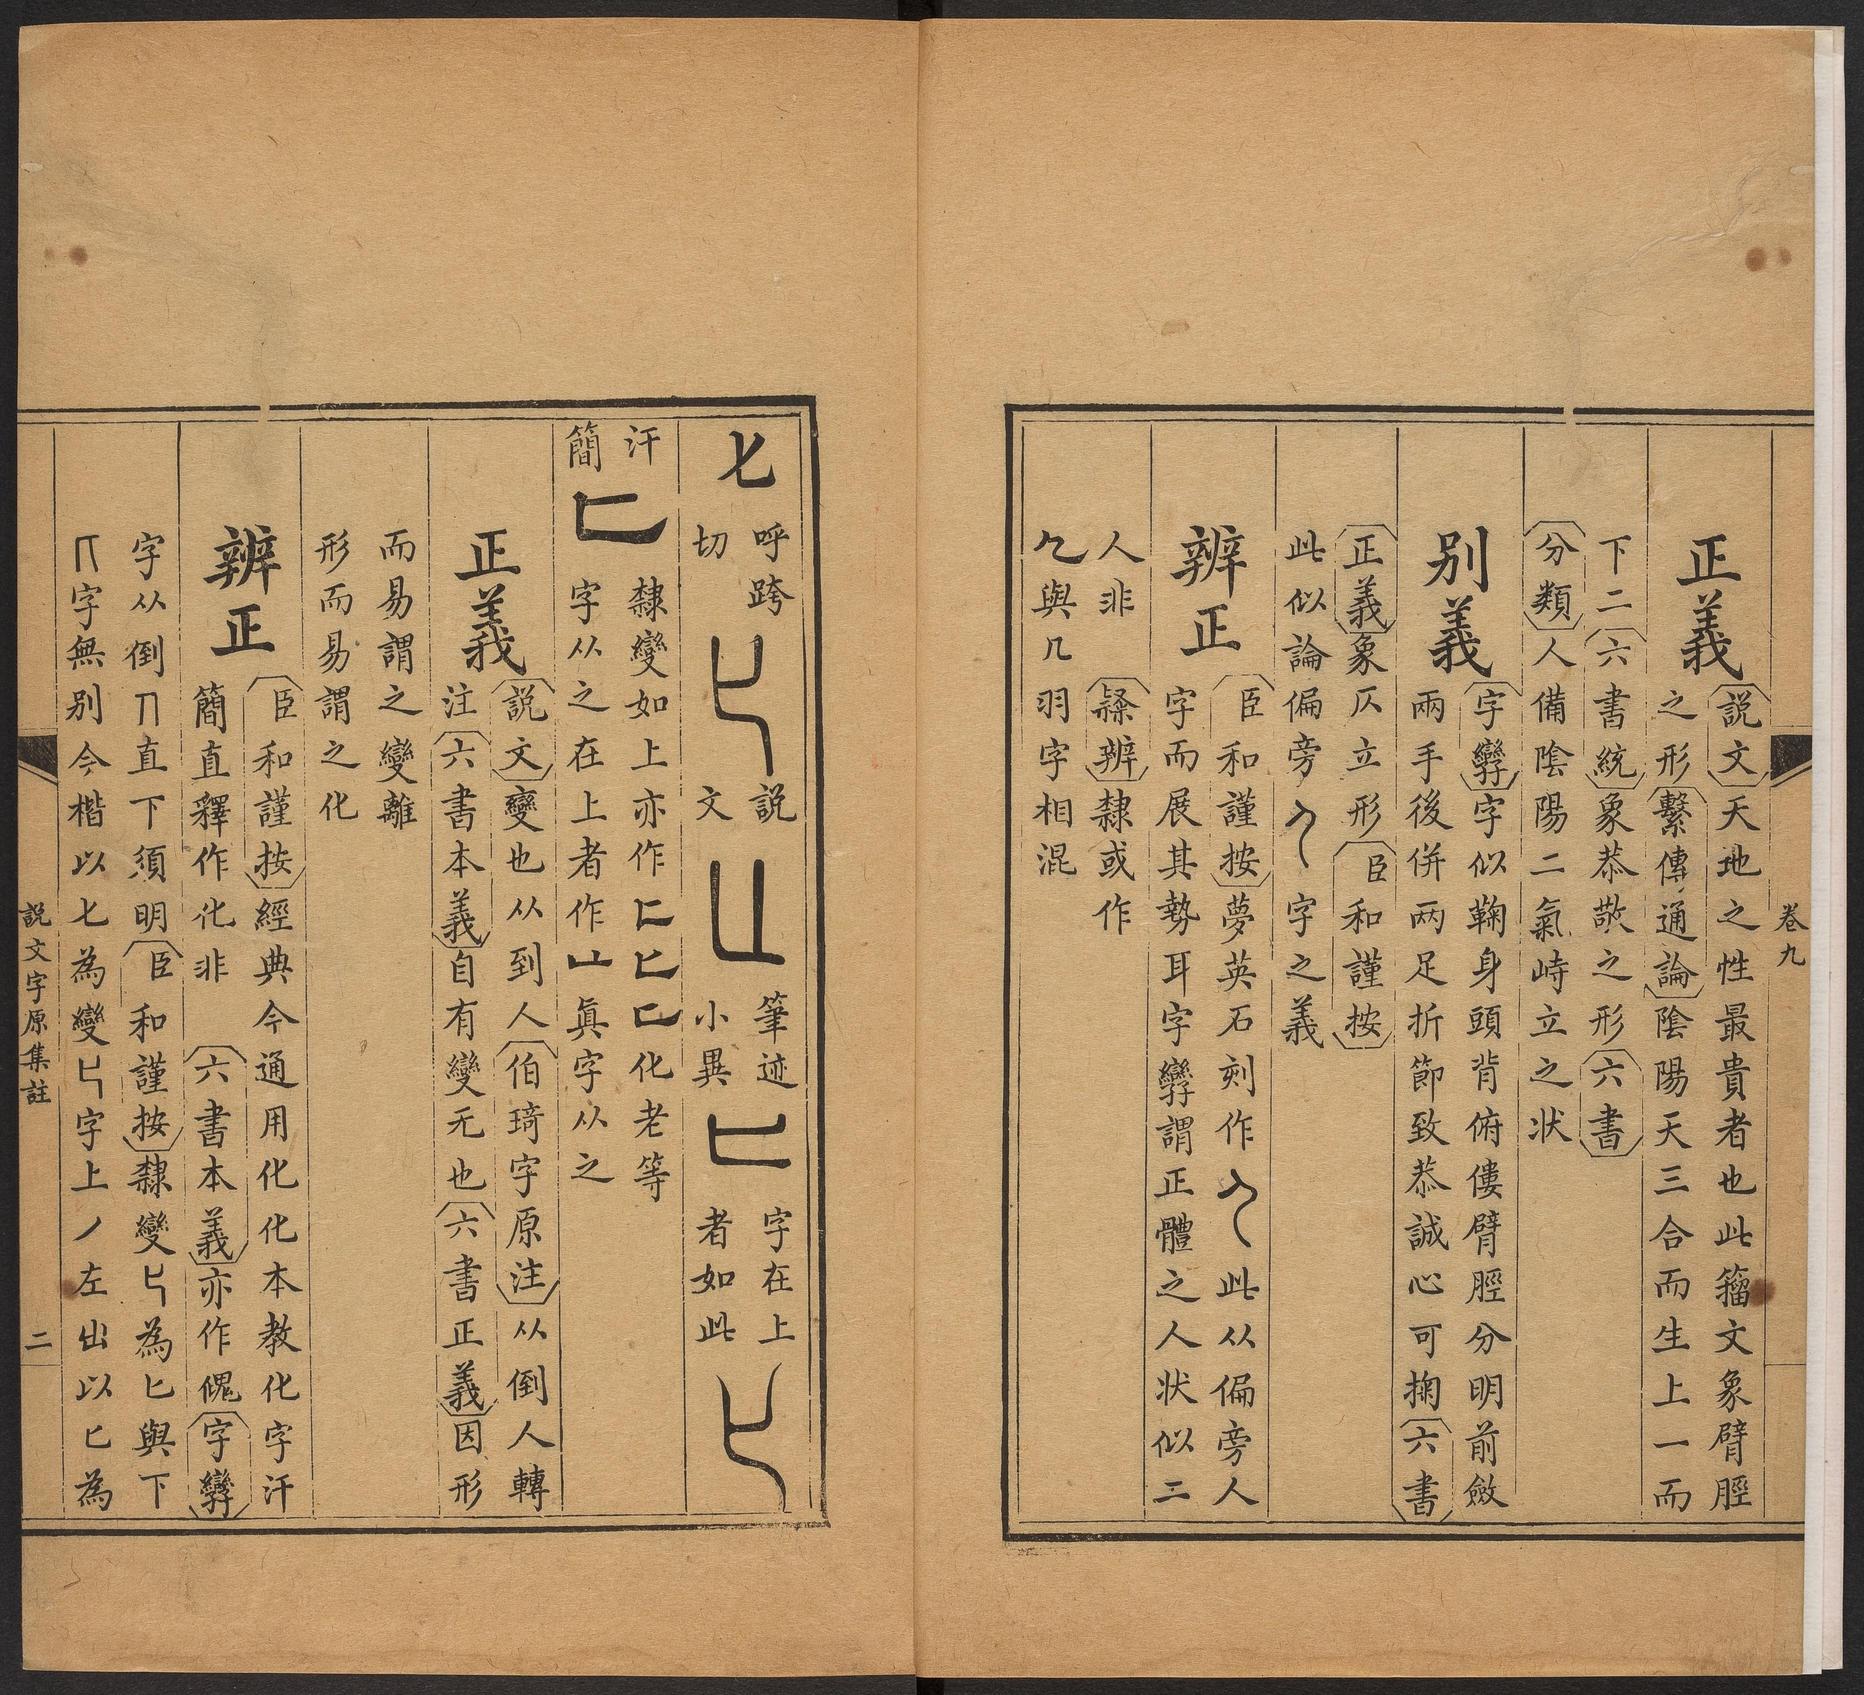 卷九
正義
説文天地之性最貴者也此籀文象臂脛
之形繫傳通論陰陽天三合而生上一而
下二六書統象恭敬之形六書
分類人備陰陽二氣峙立之状
别義
字孿字似鞠身頭背俯僂臂脛分明前斂
兩手後併兩足折節致恭誠心可掬六書
正義象仄立形臣和謹按
此似論偏旁字之義
辨正
臣和謹按夢英石刻作此从偏旁人
字而展其勢耳字孿謂正體之人状似二
人非
隸辨隸或作
與几羽字相混
七
呼跨
切
説
文
筆迹
小異
字在上
者如此
汗
簡
隸變如上亦作化老等
字从之在上者作眞字从之
正義
説文變也从到人伯琦字原注从倒人轉
注六書本義自有變无也六書正義因形
而易謂之變離
形而易謂之化
辨正
臣和謹按經典今通用化化本教化字汗
簡直釋作化非六書本義亦作傀字孿
字从倒直下須明臣和謹按隸變為匕與下
字無别今楷以七為變字上丿左出以匕為
説文字原集註
二